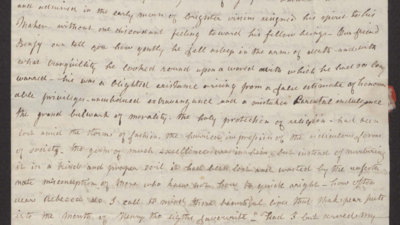 and admired in the early morn of brighter visions resigned his spirit to his
Maker without one discordant feeling toward his fellow beings. Our friend
can tell you how gently he fell asleep in the arms of death and with
what tranquility he looked round upon a world which he had so long
- his was a blighted existance arising from a false estimate of honour
able privilege - unbridled extravagance and a mistaken Parental indulgence
the grand bulwark of morality. the holy protection of religion - had been
lost amid the storms of fashion. the ridiculous forms
of society. the germ of much excellence was in him, but instead of nurturing
it in a kind and proper soil it had been and wasted by the unfortu
nate misconception of those who have to guide aright - how often
dear Rebecca do I call to mind those beautiful lines that Shakspear puts
into the mouth of Henry the Eighth's favourite "Had I but served my